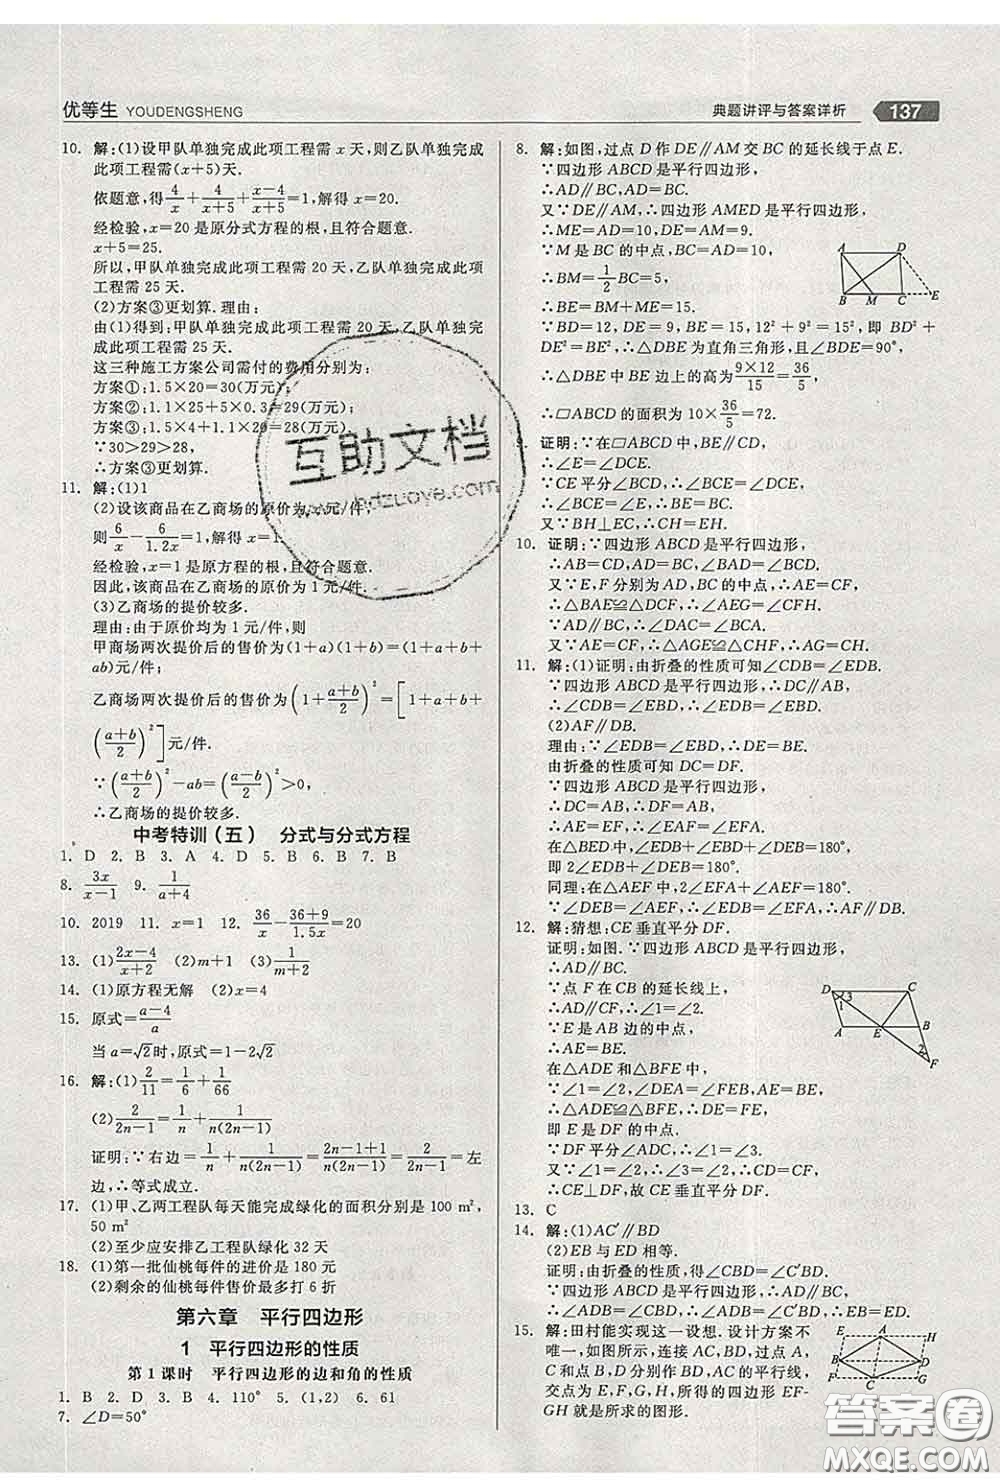 优等生 YOUDENGSHENG
典题讲评与答案详析 137
10. 解:(1)设甲队单独完成此项工程需 x 天,则乙队单独完成
此项工程需(x+5)天.
依题意,得4/x+4/(x+5)+(x-4)/(x+5)=1,解得 x=20.
经检验,x=20 是原分式方程的根,且符合题意.
x+5=25.
所以,甲队单独完成此项工程需 20 天,乙队单独完成此项
工程需 25 天.
(2)方案③更划算. 理由:
由(1)得到:甲队单独完成此项工程需 20 天,乙队单独完成
此项工程需 25 天.
这三种施工方案公司需付的费用分别为:
方案①:1.5×20=30(万元);
方案②:1.1×25+5×0.3=29(万元);
方案③:1.5×4+1.1×20=28(万元).
∵30>29>28,
∴方案③更划算.
11. 解:(1)1
(2)设该商品在乙商场的原价为 x 元/件,
则6/x-6/1.2x=1,解得 x=1.
经检验,x=1 是原方程的根,且符合题意.
因此,该商品在乙商场的原价为 1 元/件.
(3)乙商场的提价较多.
理由:由于原价均为 1 元/件,则
甲商场两次提价后的售价为(1+a)(1+b)=(1+a+b+
ab)元/件;
乙商场两次提价后的售价为(1+(a+b)/2)²=[1+a+b+
((a+b)/2)²]元/件.
∵((a+b)/2)²-ab=((a-b)/2)²>0,
∴乙商场的提价较多.
中考特训(五) 分式与分式方程
1. D 2. B 3. A 4. D 5. B 6. B 7. B
8. 3x/(x-1) 9. 1/(a+4)
10. 2019 11. x=1 12. 36/x-(36+9)/1.5x=20
13. (1)(2x-4)/(x+2) (2)m+1 (3)1/(m+2)
14. (1)原方程无解 (2)x=4
15. 原式=(a-4)/a
当 a=√2时,原式=1-2√2
16. 解:(1)2/11=1/6+1/66
(2)2/(2n-1)=1/n+1/n(2n-1)
证明:∵右边=1/n+1/n(2n-1)=(2n-1+1)/n(2n-1)=2/(2n-1)=左
边,∴等式成立.
17. (1)甲、乙两工程队每天能完成绿化的面积分别是 100 m²,
50 m²
(2)至少应安排乙工程队绿化 32 天
18. (1)第一批仙桃每件的进价是 180 元
(2)剩余的仙桃每件售价最多打 6 折
第六章 平行四边形
1 平行四边形的性质
第 1 课时 平行四边形的边和角的性质
1. B 2. D 3. B 4. 110° 5. (1,2) 6. 61
7. ∠D=50°
8. 解:如图,过点 D 作 DE∥AM 交 BC 的延长线于点 E.
∵四边形 ABCD 是平行四边形,
∴AD∥BC,AD=BC.
又∵DE∥AM,∴四边形 AMED 是平行四边形,
∴ME=AD=10,DE=AM=9.
∵M 是 BC 的中点,BC=AD=10,
∴BM=1/2BC=5,
∴BE=BM+ME=15.
∵BD=12,DE=9,BE=15,12²+9²=15²,即 BD²+
DE²=BE²,∴△BDE 为直角三角形,且∠BDE=90°,
∴△DBE 中 BE 边上的高为9×12/15=36/5,
∴▱ABCD 的面积为 10×36/5=72.
A D B M C E
9. 证明:∵在▱ABCD 中,BE∥CD,
∴∠E=∠DCE.
∵CE 平分∠BCD,∴∠BCE=∠DCE,
∴∠BCE=∠E,∴BE=BC.
又∵BH⊥EC,∴CH=EH.
10. 证明:∵四边形 ABCD 是平行四边形,
∴AB=CD,AD=BC,∠BAD=∠BCD.
又∵E,F 分别为 AD,BC 的中点,∴AE=CF,
∴△BAE≌△DCF,∴∠AEB=∠CFD.
∵AD∥BC,∴∠DAC=∠BCA.
又∵AE=CF,∴△AGE≌△CHF,∴AG=CH.
11. 解:(1)证明:由折叠的性质可知∠CDB=∠EDB.
∵四边形 ABCD 是平行四边形,∴DC∥AB,
∴∠CDB=∠EBD,∴∠EDB=∠EBD.
(2)AF∥DB.
理由:∵∠EDB=∠EBD,∴DE=BE.
由折叠的性质可知 DC=DF.
∵四边形 ABCD 是平行四边形,
∴DC=AB,∴DF=AB,
∴AE=EF,∴∠EAF=∠EFA.
在△BED中,∠EDB+∠EBD+∠DEB=180°,
即 2∠EDB+∠DEB=180°.
同理:在△AEF 中,2∠EFA+∠AEF=180°.
∵∠DEB=∠AEF,∴∠EDB=∠EFA,∴AF∥DB.
12. 解:猜想:CE 垂直平分 DF.
证明:如图.∵四边形 ABCD 是平行四边形,
∴AD∥BC.
∵点 F 在 CB 的延长线上,
∴AD∥CF,∴∠1=∠2.
∵E 是 AB 边的中点,
∴AE=BE.
在△ADE 和△BFE 中,
∵∠1=∠2,∠DEA=∠FEB,AE=BE,
∴△ADE≌△BFE,∴DE=FE,
即 E 是 DF 的中点.
∵DF 平分∠ADC,∴∠1=∠3,
又∵∠1=∠2,∴∠3=∠2,∴CD=CF,
∴CE⊥DF,故 CE 垂直平分 DF.
D 3 C 1 A E B 2 F
13. C
14. 解:(1)AC′∥BD
(2)EB 与 ED 相等.
由折叠的性质可得,∠CBD=∠C′BD.
∵AD∥BC,∴∠CBD=∠ADB,
∴∠EBD=∠EDB,∴BE=DE.
15. 解:田村能实现这一设想. 设计方案不
唯一,如图所示,连接 AC,过点 A,点
C 和点 B,点 D 分别作 BD,AC 的平行线,
交点为 E,F,G,H,则四边形 EF-
GH 就是所求的图形.
E A H B D F C G
互助文档
www.hdzuoye.com
答案圈
MXQE.COM